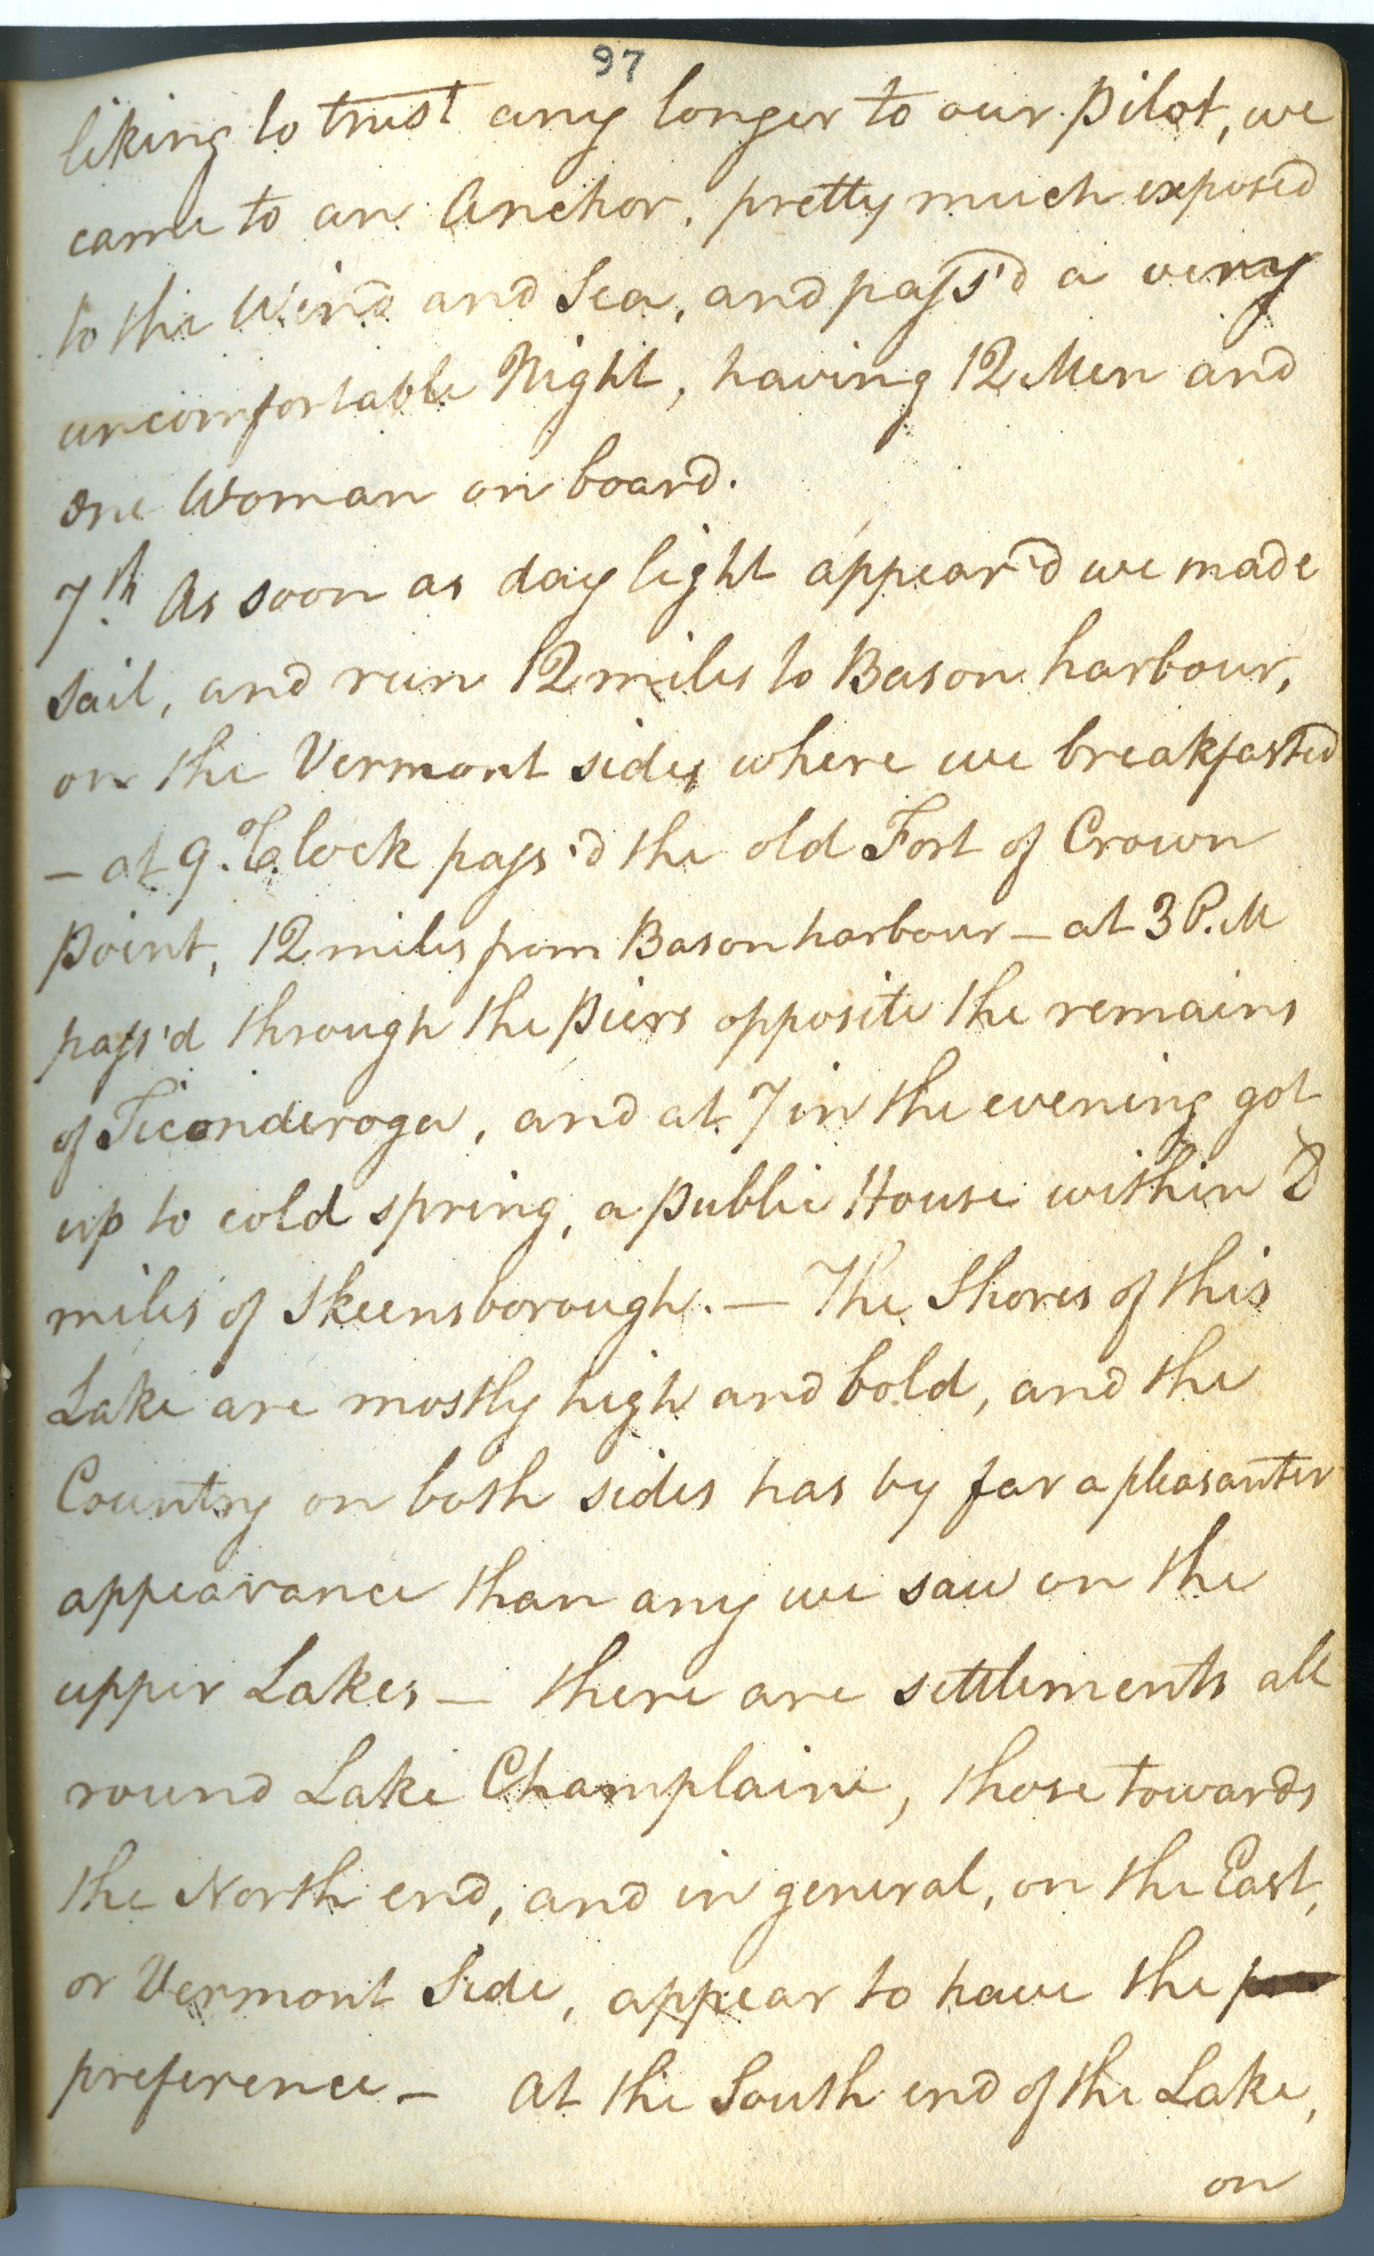 97
liking to trust any longer to our Pilot, we
came to an Anchor, pretty much exposed
to the Wind and Sea, and pass'd a very
uncomfortable Night, having 12 Men and
one Woman on board.
7th. As soon as day light appear'd we made
sail, and run 12 miles to Bason harbour,
on the Vermont side, where we breakfasted
— at 9 o'Clock pass'd the old Fort of Crown
Point, 12 miles from Bason harbour — at 3 P.M
pass'd through the Piers opposite the remains
of Ticonderoga, and at 7 in the evening got
up to cold spring, a Public House within
miles of Skeensborough. — The Shores of this
Lake are mostly high and bold, and the
Country on both sides has by far a pleasanter
appearance than any we saw on the
upper Lakes — there are settlements all
round Lake Champlain, those towards
the North end, and in general, on the East,
or Vermont Side, appear to have the
preference — at the South end of the Lake,
on